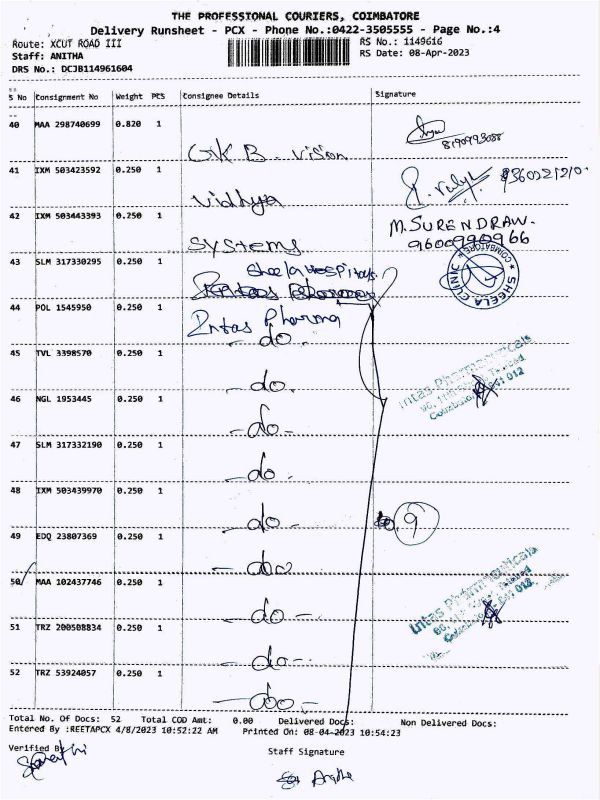 THE PROFESSIONAL COURIERS, COIMBATORE
Delivery Runsheet - PCX - Phone No.:0422-3505555 - Page No.:4
Route: XCUT ROAD III
RS No.: 1149616
Staff: ANITHA
RS Date: 08-Apr-2023
DRS No.: DCJB114961604
S No Consignment No Weight PCS Consignee Details Signature
40 MAA 298740699 0.820 1
GKB vision
8190993088
41 IXM 503423592 0.250 1
Vidhya
42 IXM 503443393 0.250 1
M. SURENDRAN.
9600990966
Systems
43 SLM 317330295 0.250 1
Sheela Hospital
SHEELA CLINIC COIMBATORE
44 POL 1545950 0.250 1
Intas Pharma
- do.
45 TVL 3398570 0.250 1
- do.
Intas Pharmaceuticals
46 NGL 1953445 0.250 1
- do -
47 SLM 317332190 0.250 1
- do.
48 IXM 503439970 0.250 1
- do -
9
49 EDQ 23807369 0.250 1
- do
50 MAA 102437746 0.250 1
- do -
Intas Pharmaceuticals
51 TRZ 200508834 0.250 1
- do -
52 TRZ 53924057 0.250 1
- do -
Total No. Of Docs: 52 Total COD Amt: 0.00 Delivered Docs: Non Delivered Docs:
Entered By :REETAPCX 4/8/2023 10:52:22 AM Printed On: 08-04-2023 10:54:23
Verified By
Staff Signature